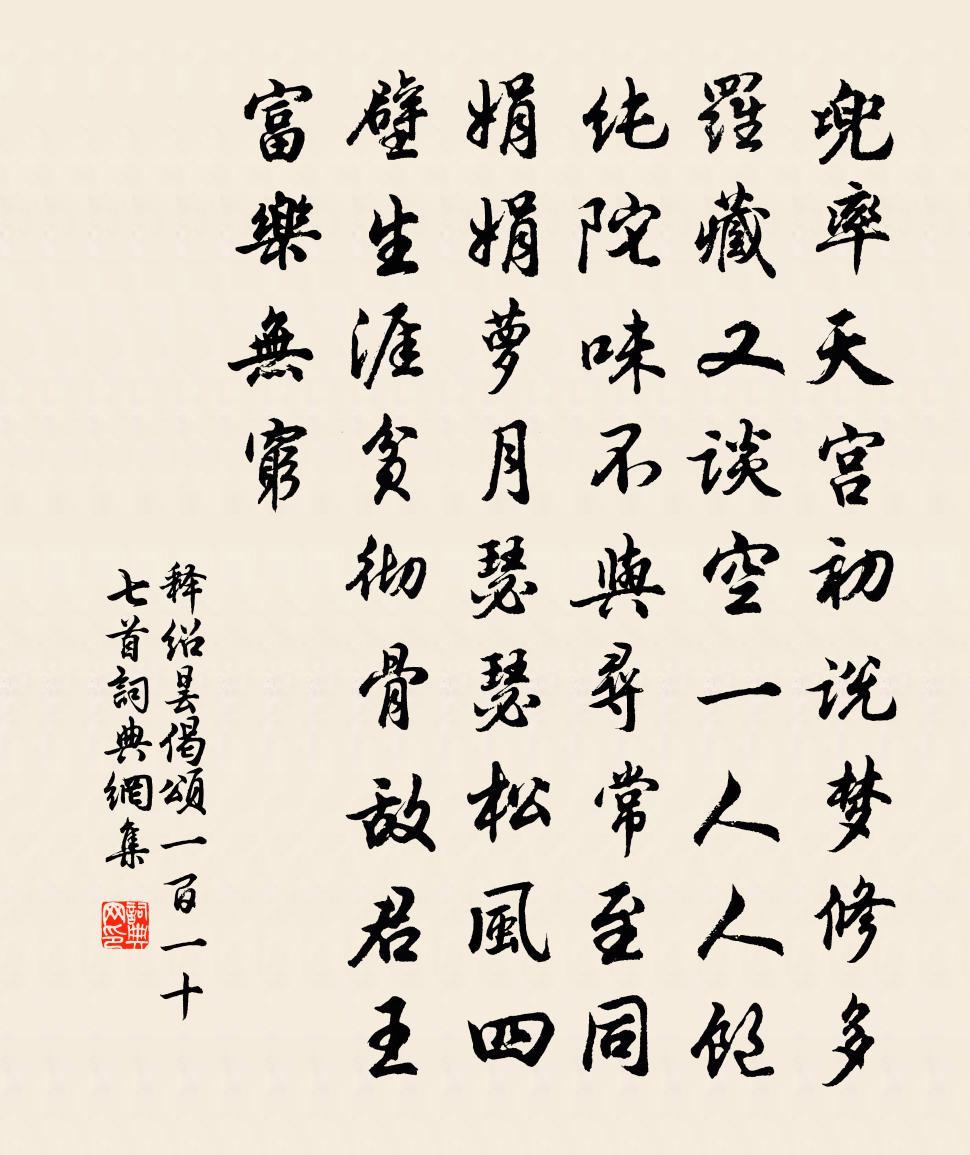 兜率天宫初说梦修多
羅藏又談空一人人飽
纯陀味不與尋常至同
娟娟萝月瑟瑟松風四
壁生涯貧彻骨敌君王
富樂無窮
释绍昙偈頌一百一十
七首詞典網集
詞典网印